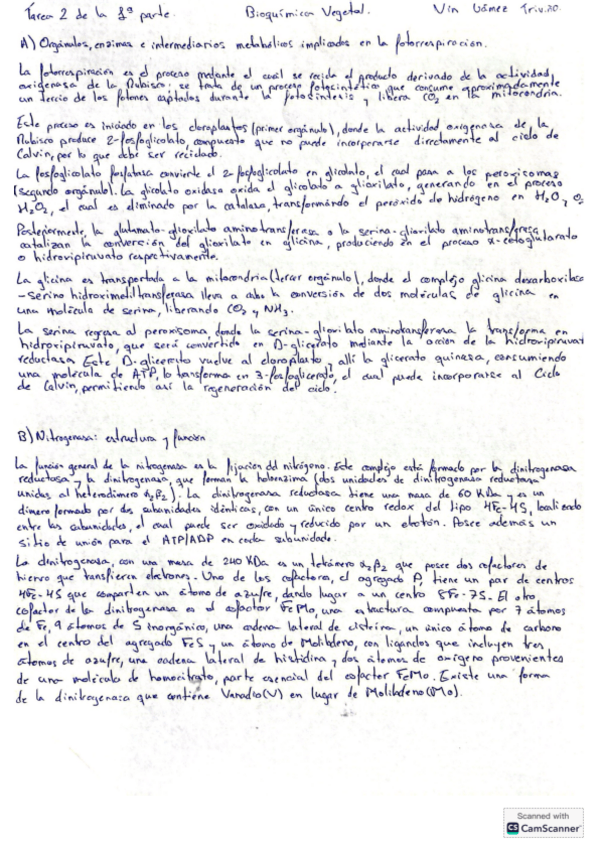 Tarea 2 de la 1ª parte. Bioquímica Vegetal.
A) Orgánulos, enzimas e intermediarios metabólicos implicados en la fotorrespiración.
La fotorrespiración es el proceso mediante el cual se recicla el producto derivado de la actividad
oxigenasa de la Rubisco; se trata de un proceso fotosintético que consume aproximadamente
un tercio de los fotones captados durante la fotosíntesis y libera CO2 en la mitocondria.
Este proceso es iniciado en los cloroplastos (primer orgánulo), donde la actividad oxigenasa de la
Rubisco produce 2-fosfoglicolato, compuesto que no puede incorporarse directamente al ciclo de
Calvin, por lo que debe ser reciclado.
La fosfoglicolato fosfatasa convierte el 2-fosfoglicolato en glicolato, el cual pasa a los peroxisomas
(segundo orgánulo). La glicolato oxidasa oxida el glicolato a glioxilato, generando en el proceso
H2O2, el cual es eliminado por la catalasa, transformando el peróxido de hidrógeno en H2O y O2
Posteriormente, la glutamato-glioxilato aminotransferasa o la serina-glioxilato aminotransferasa
catalizan la conversión del glioxilato en glicina, produciendo en el proceso α-cetoglutarato
o hidroxipiruvato respectivamente.
La glicina es transportada a la mitocondria (tercer orgánulo), donde el complejo glicina descarboxilasa
-serina hidroximetiltransferasa lleva a cabo la conversión de dos moléculas de glicina en
una molécula de serina, liberando CO2 y NH3.
La serina regresa al peroxisoma, donde la serina-glioxilato aminotransferasa la transforma en
hidroxipiruvato, que será convertido en D-glicerato mediante la acción de la hidroxipiruvato
reductasa. Este D-glicerato vuelve al cloroplasto, allí la glicerato quinasa, consumiendo
una molécula de ATP, lo transforma en 3-fosfoglicerato, el cual puede incorporarse al Ciclo
de Calvin, permitiendo así la regeneración del ciclo.
B) Nitrogenasa: estructura y función
La función general de la nitrogenasa es la fijación del nitrógeno. Este complejo está formado por la dinitrogenasa
reductasa y la dinitrogenasa, que forman la holoenzima (dos unidades de dinitrogenasa reductasa
unidas al heterodímero α2β2). La dinitrogenasa reductasa tiene una masa de 60 KDa y es un
dímero formado por dos subunidades idénticas, con un único centro redox del tipo 4Fe-4S, localizado
entre las subunidades, el cual puede ser oxidado y reducido por un electrón. Posee además un
sitio de unión para el ATP/ADP en cada subunidad.
La dinitrogenasa, con una masa de 240 KDa es un tetrámero α2β2 que posee dos cofactores de
hierro que transfieren electrones. Uno de los cofactores, el agregado P, tiene un par de centros
4Fe-4S que comparten un átomo de azufre, dando lugar a un centro 8Fe-7S. El otro
cofactor de la dinitrogenasa es el cofactor FeMo, una estructura compuesta por 7 átomos
de Fe, 9 átomos de S inorgánico, una cadena lateral de cisteína, un único átomo de carbono
en el centro del agregado FeS y un átomo de Molibdeno, con ligandos que incluyen tres
átomos de azufre, una cadena lateral de histidina y dos átomos de oxígeno provenientes
de una molécula de homocitrato, parte esencial del cofactor FeMo. Existe una forma
de la dinitrogenasa que contiene Vanadio(V) en lugar de Molibdeno(Mo).
Scanned with
CS CamScanner